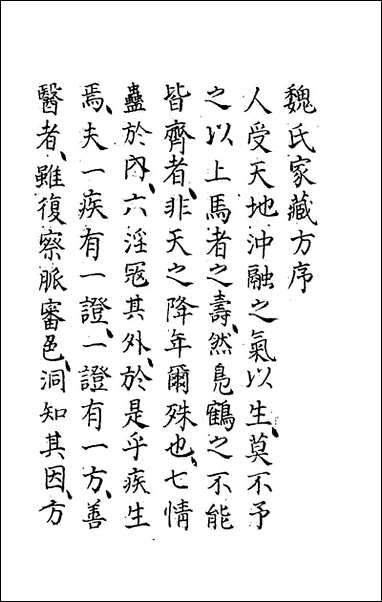 魏氏家藏方序
人受天地沖融之氣以生、莫不予
之以上馬者之壽、然鳧鶴之不能
皆齊者、非天之降年爾殊也、七情
蠱於內、六淫冦其外、於是乎疾生
焉、夫一疾有一證、一證有一方、善
醫者、雖復察脈審色、洞知其因、方